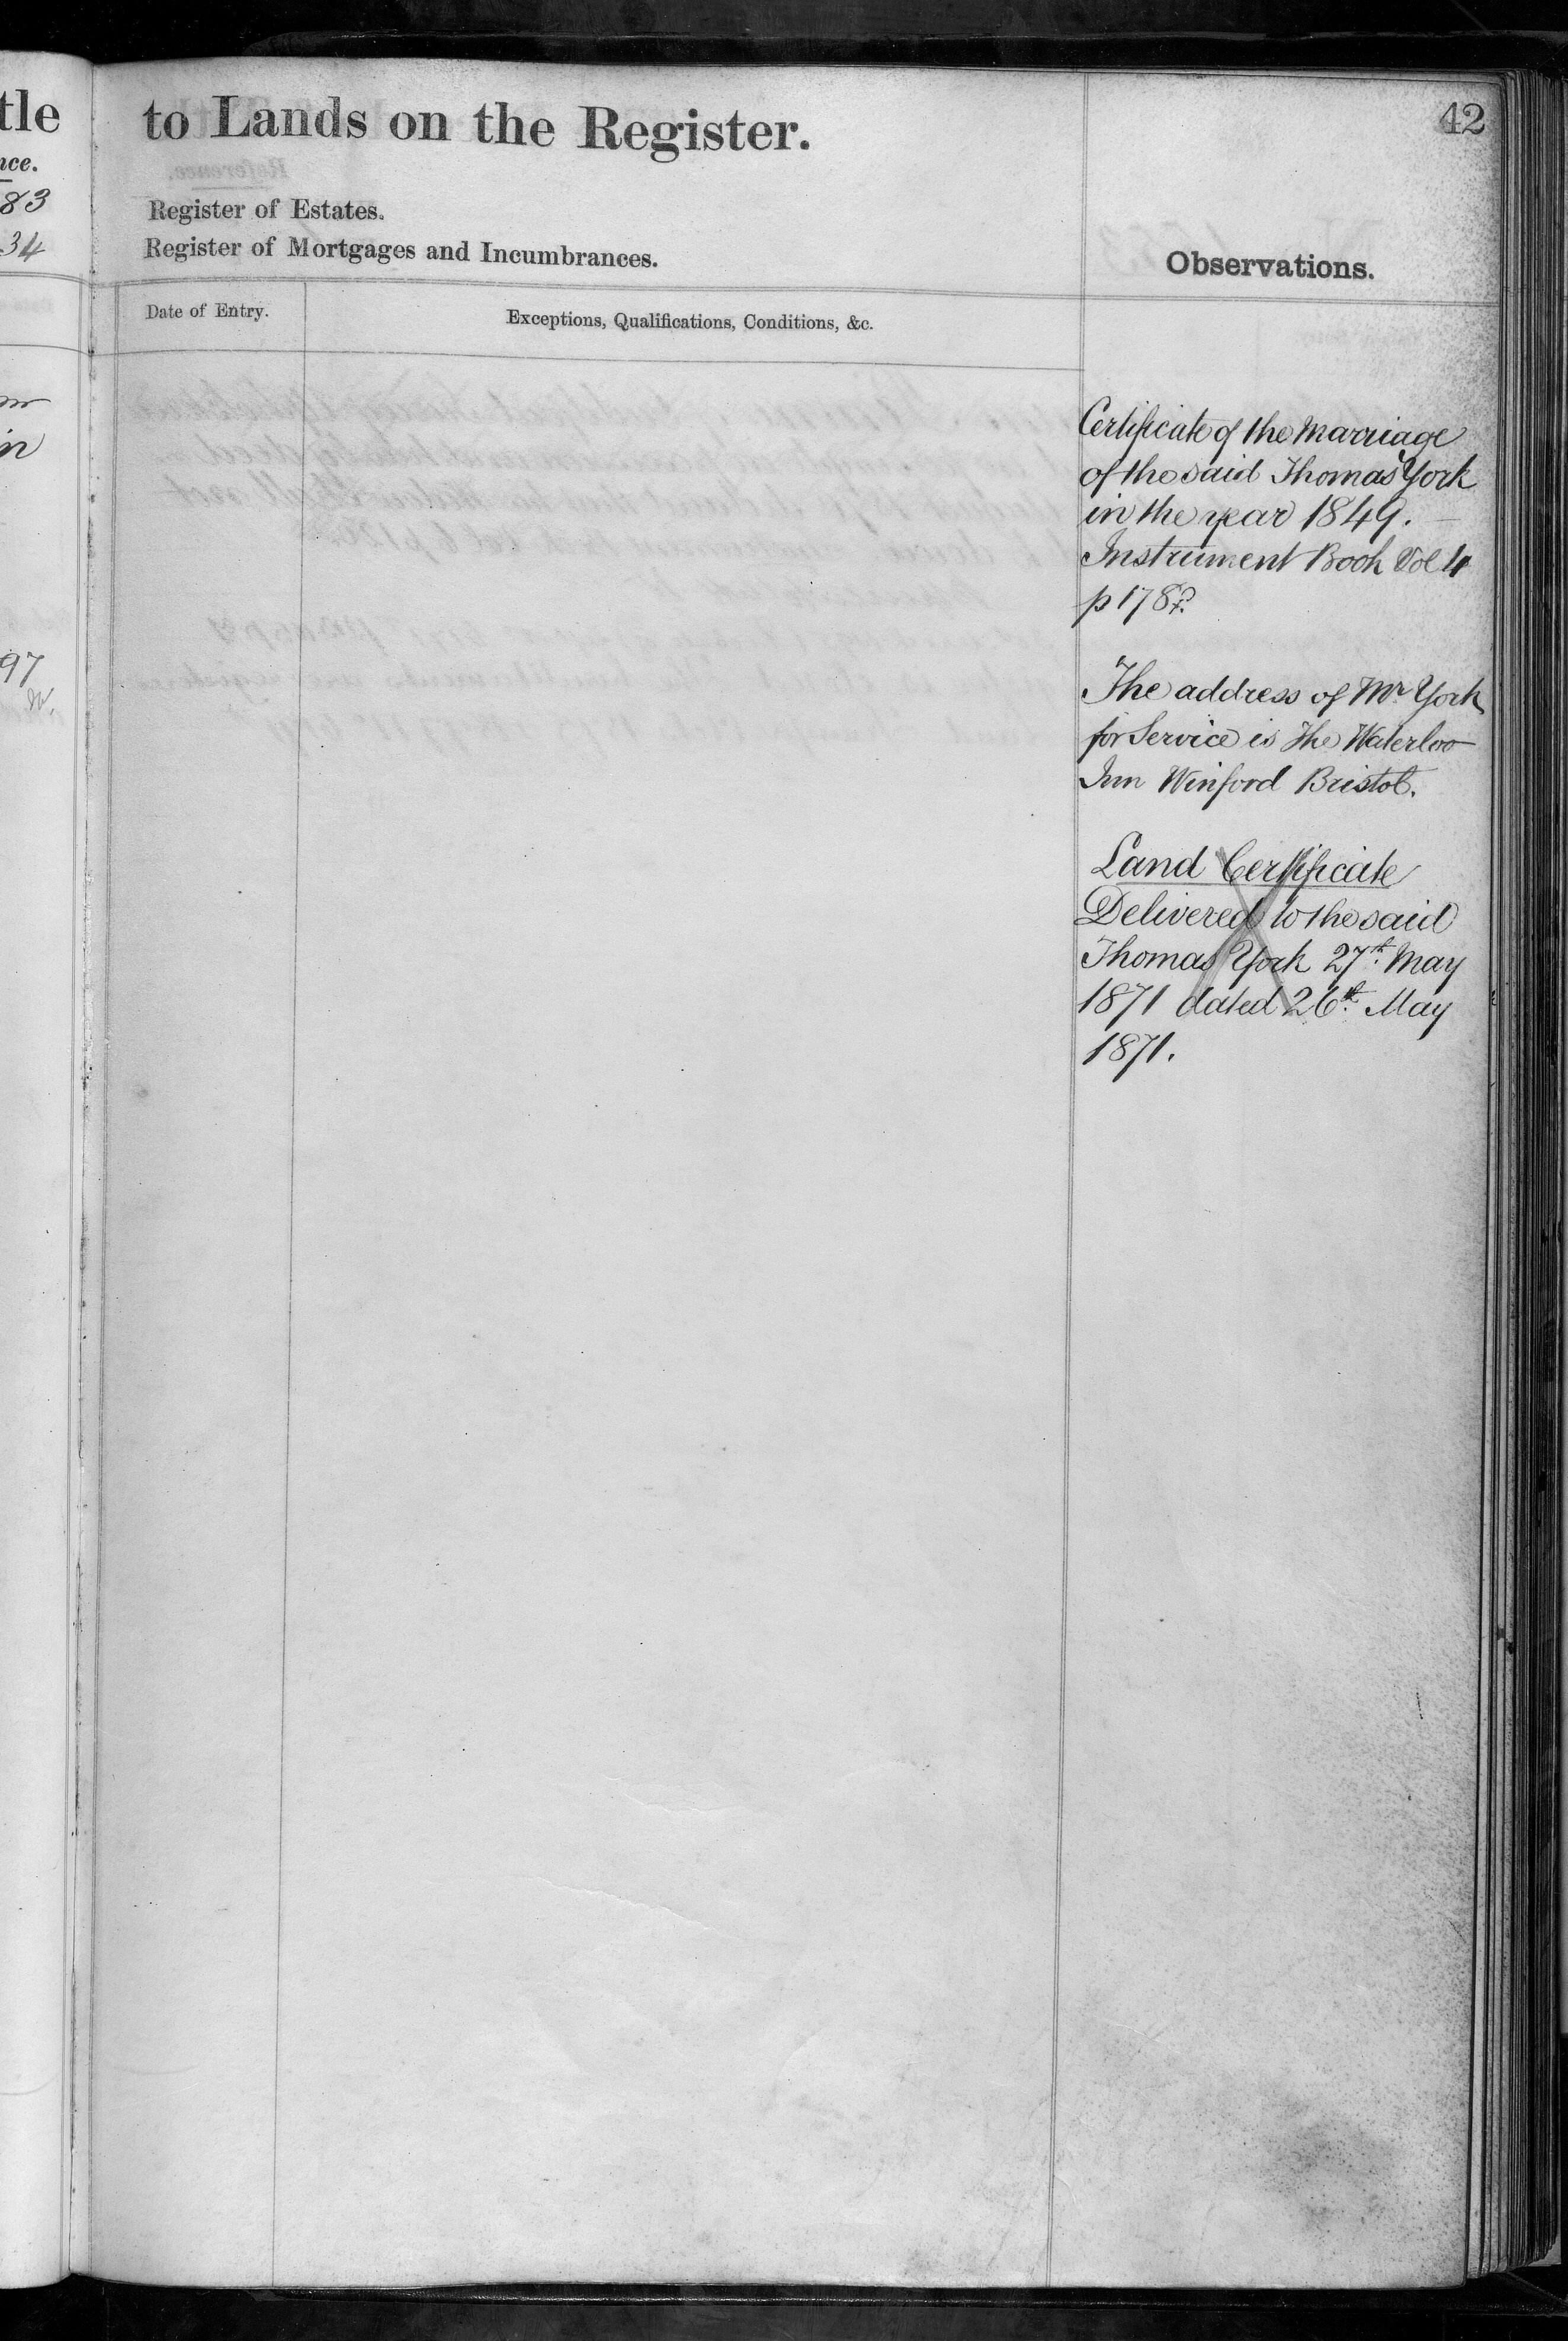 tle
nce.
83
34
in
97
to Lands on the Register.
42
Register of Estates.
Register of Mortgages and Incumbrances.
Observations.
Date of Entry.
Exceptions, Qualifications, Conditions, &c.
Certificate of the Marriage
of the said Thomas York
in the year 1849.
Instrument Book Vol 4
p 178
The address of Mr York
for Service is The Waterloo
Inn Winford Bristol.
Land Certificate
Delivered to the said
Thomas York 27th May
1871 dated 26th May
1871.